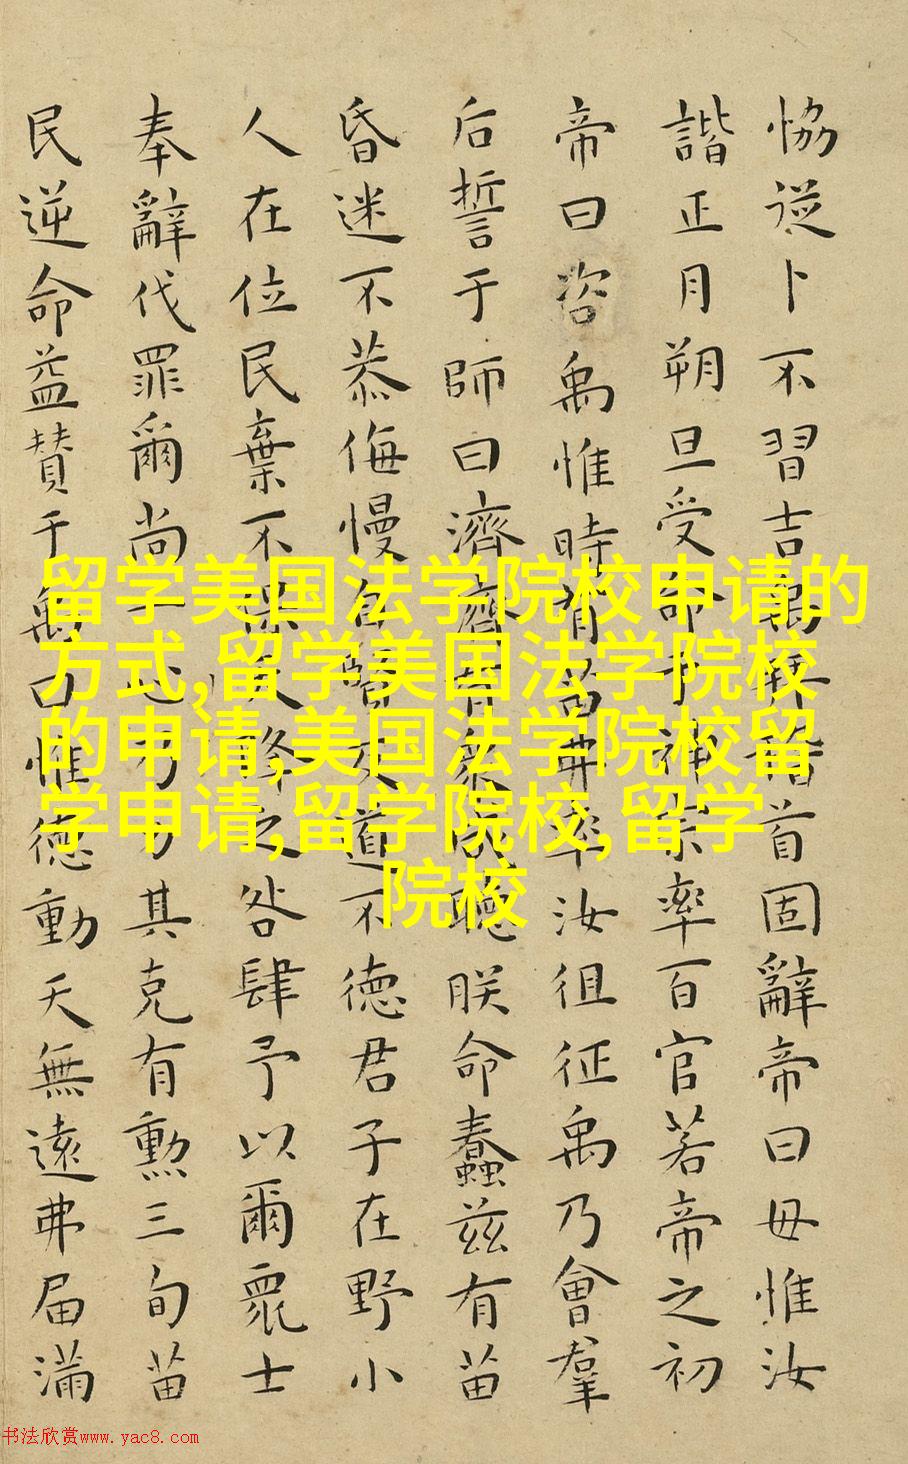 恊從卜不習吉禹拜稽首固辭帝曰毋惟汝
諧正月朔旦受命于神宗率百官若帝之初
帝曰咨禹惟時有苗弗率汝徂征禹乃會羣
后誓于師曰濟濟有衆咸聽朕命蠢兹有苗
昏迷不恭侮慢自賢反道不德君子在野小
人在位民棄不保天降之咎肆予以爾衆士
奉辭伐罪爾尚一心乃力其克有勲三旬苗
民逆命益賛于禹曰惟德動天無遠弗届滿
留学美国法学院校申请的
方式,留学美国法学院校
的申请,美国法学院校留
学申请,留学院校,留学
院校
书法欣赏www.yac8.com